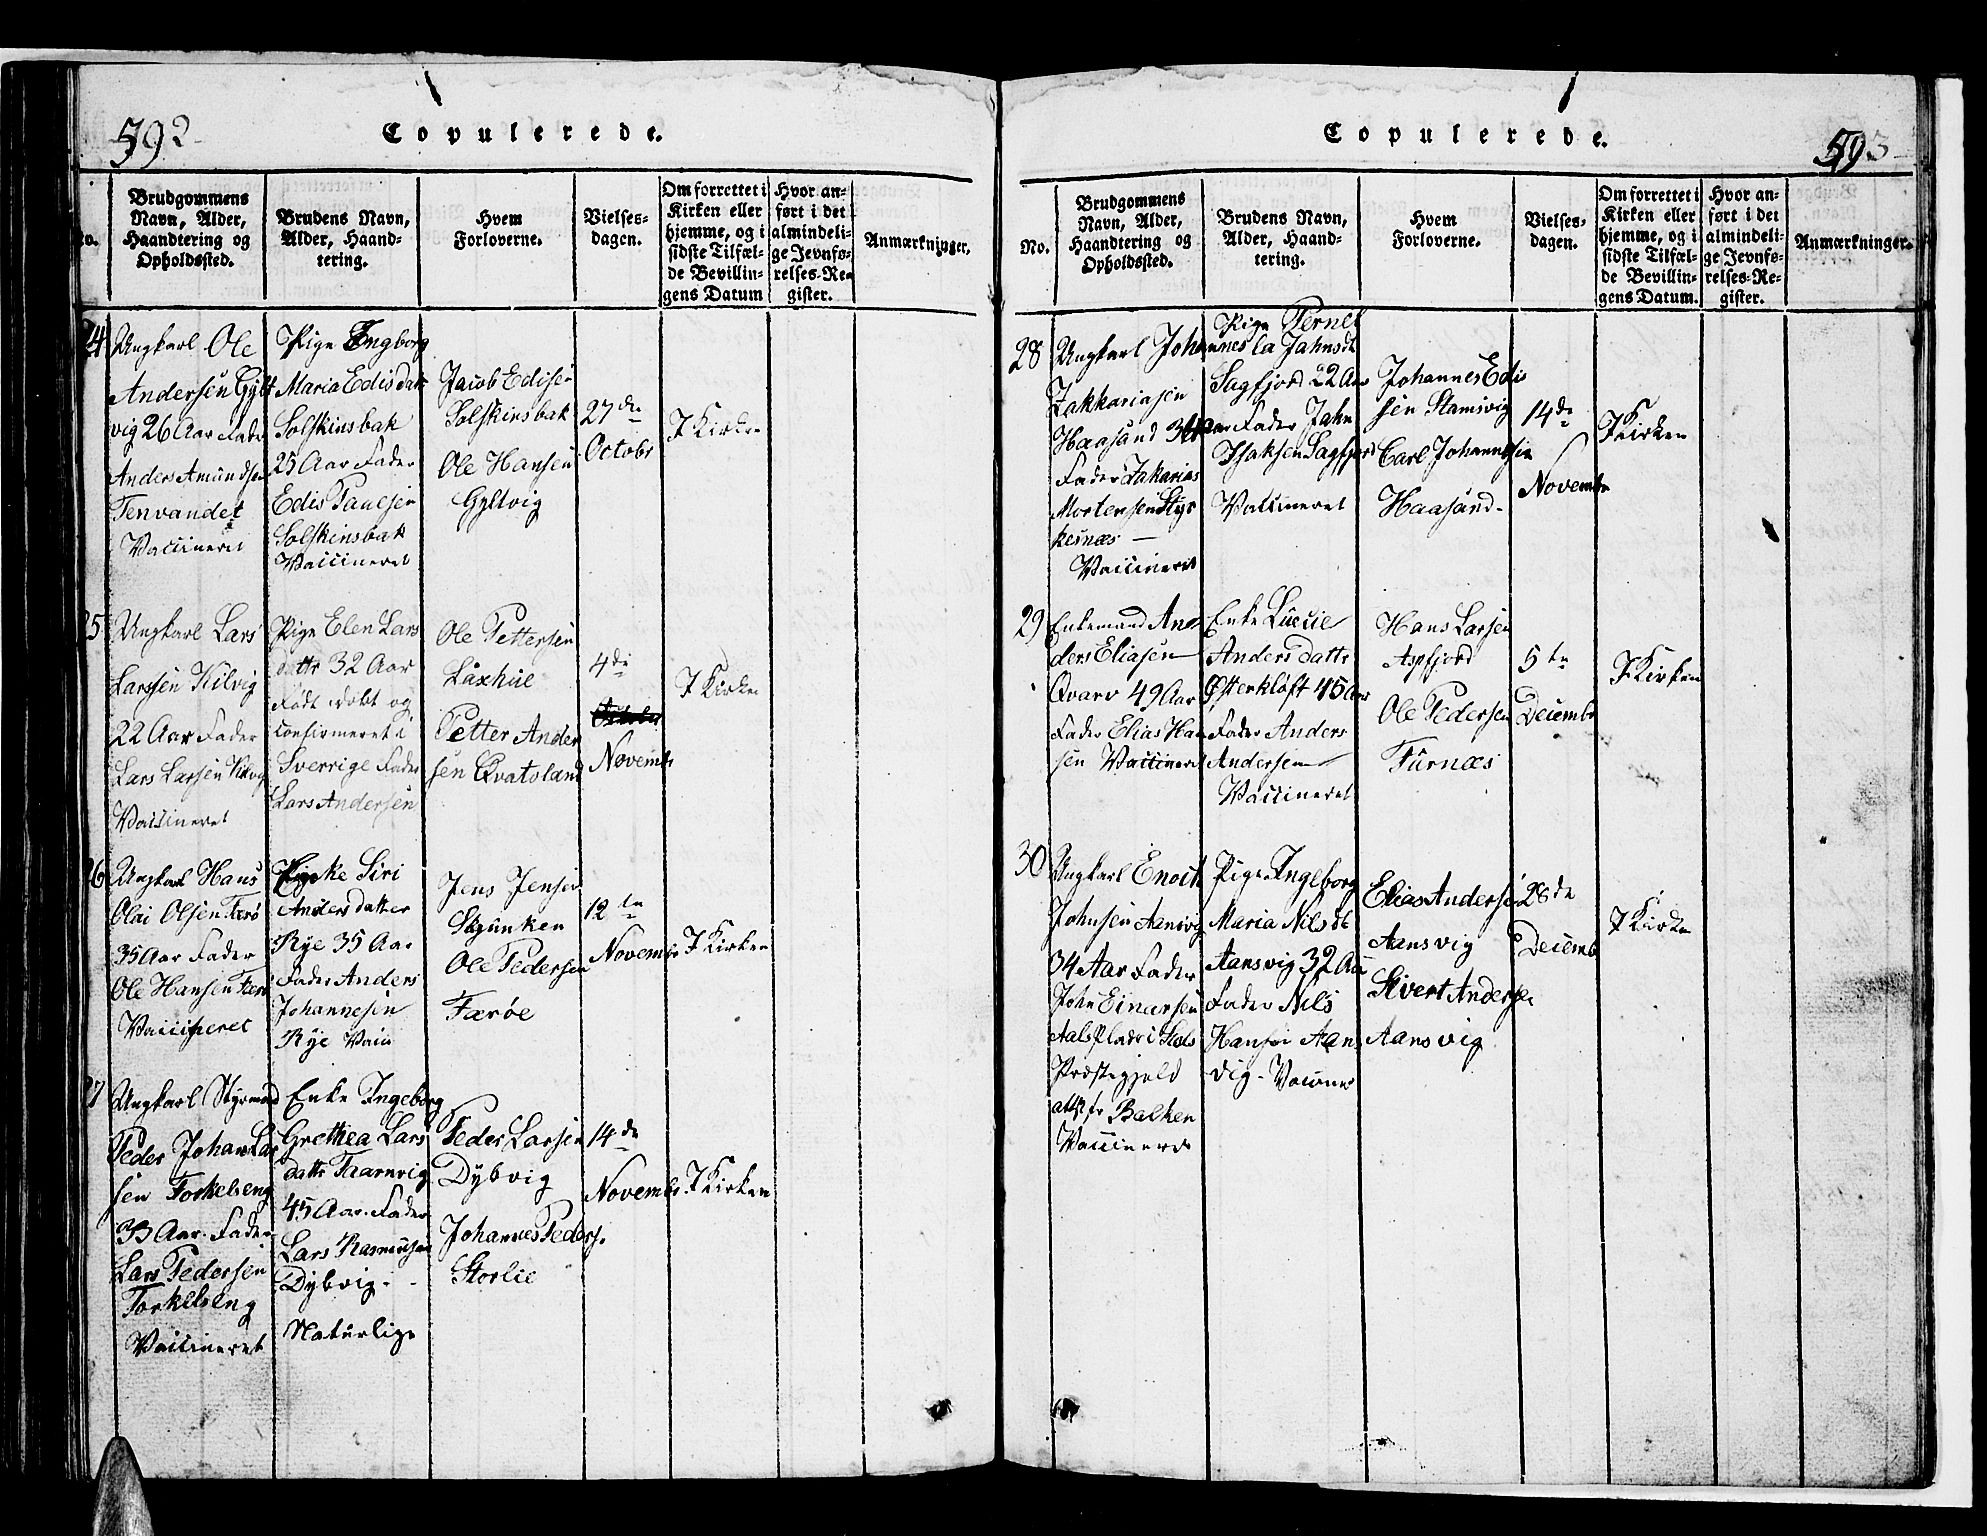 592
Copulerede.
No.
Brudgommens
Navn, Alder,
Haandtering og
Opholdssted.
Brudens Navn,
Alder, Haand-
tering.
Hvem
Forloverne.
Vielses-
dagen.
Om forrettet i
Kirken eller
hjemme, og i
sidste Tilfæl-
de Bevillin-
gens Datum
Hvor an-
ført i det
almindeli-
ge Jevnfø-
relses-Re-
gister.
Anmærkninger.
24
Ungkarl Ole
Andersen Gylt
vig 26 Aar Fader
Anders Amundsen
Tenvandet
Vaccineret
Pige Ingborg
Maria Edisdatr
Solskinsbak
25 Aar Fader
Edis Paulsen
Solskinsbak
Vaccineret
Jacob Edisen
Solskinsbak
Ole Hansen
Gyltvig
27de
Octobr
I Kirken
25
Ungkarl Lars
Larssen Kilvig
22 Aar Fader
Lars Larsen Kilvig
Vaccineret
Pige Elen Lars
dattr 32 Aar
Født døbt og
confirmeret i
Sverrige Fader
Lars Andersen
Ole Pettersen
Laxhue
Petter Ander
sen Qvatoland
4de
Novembr
I Kirken
26
Ungkarl Hans
Olai Olsen Færø
35 Aar Fader
Ole Hansen Færø
Vaccineret
Siri
Andersdatter
Rye 35 Aar
Fader Anders
Johannesen
Rye Vacc
Jens Jensen
Skjunken
Ole Pedersen
Færöe
12te
Novembr
I Kirken
27
Ungkarl Styrmand
Peder Johan Lar
sen Torkelseng
33 Aar. Fader
Lars Pedersen
Torkelseng
Vaccineret
Enke Ingeborg
Grethea Lars
dattr Taarnvig
45 Aar. Fader
Lars Rasmusen
Dybvig -
Naturlige
Peder Larsen
Dybvig
Johannes Peders.
Storlie
14de
Novembr
I Kirken
593
Copulerede.
No.
Brudgommens
Navn, Alder,
Haandtering og
Opholdssted.
Brudens Navn,
Alder, Haand-
tering.
Hvem
Forloverne.
Vielses-
dagen.
Om forrettet i
Kirken eller
hjemme, og i
sidste Tilfæl-
de Bevillin-
gens Datum.
Hvor an-
ført i det
almindeli-
ge Jevnfø-
relses-Re-
gister.
Anmærkninger.
28
Ungkarl Johannes
Zakkariasen
Haasund Aar
Fader Zakarias
Mortensen Styr
kesnæs —
Vaccineret
Pige Pernel
la Jahnsdt
Sagfjord 22 Aar
Fader Jahn
Isaksen Sagfjord
Vaccineret
Johannes Edis
sen Stamsvig
Carl Johannesen
Haasund-
14de
Novembr
I Kirken
29
Enkemand An
ders Eliasen
Qvarv 49 Aar
Fader Elias Han
sen Vaccineret
Enke Lucie
Andersdattr
Østerkløft 45 Aar
Fader Anders
Andersen
Vaccineret
Hans Larsen
Aspfjord
Ole Pedersen
Furnæs
5te
Decembr
I Kirken
30
Ungkarl Enoch
Johnsen Aansvig
34 Aar Fader
John Einersen
i
Præstegjeld
Balken
Vaccineret
Pige Ingeborg
Maria Nilsdt
Aansvig 32 Aar
Fader Nils
Hansen Aans
vig - Vaccineret
Elias Andersen
Aansvig
Sivert Andersen
Aansvig
28de
Decembr
I Kirken